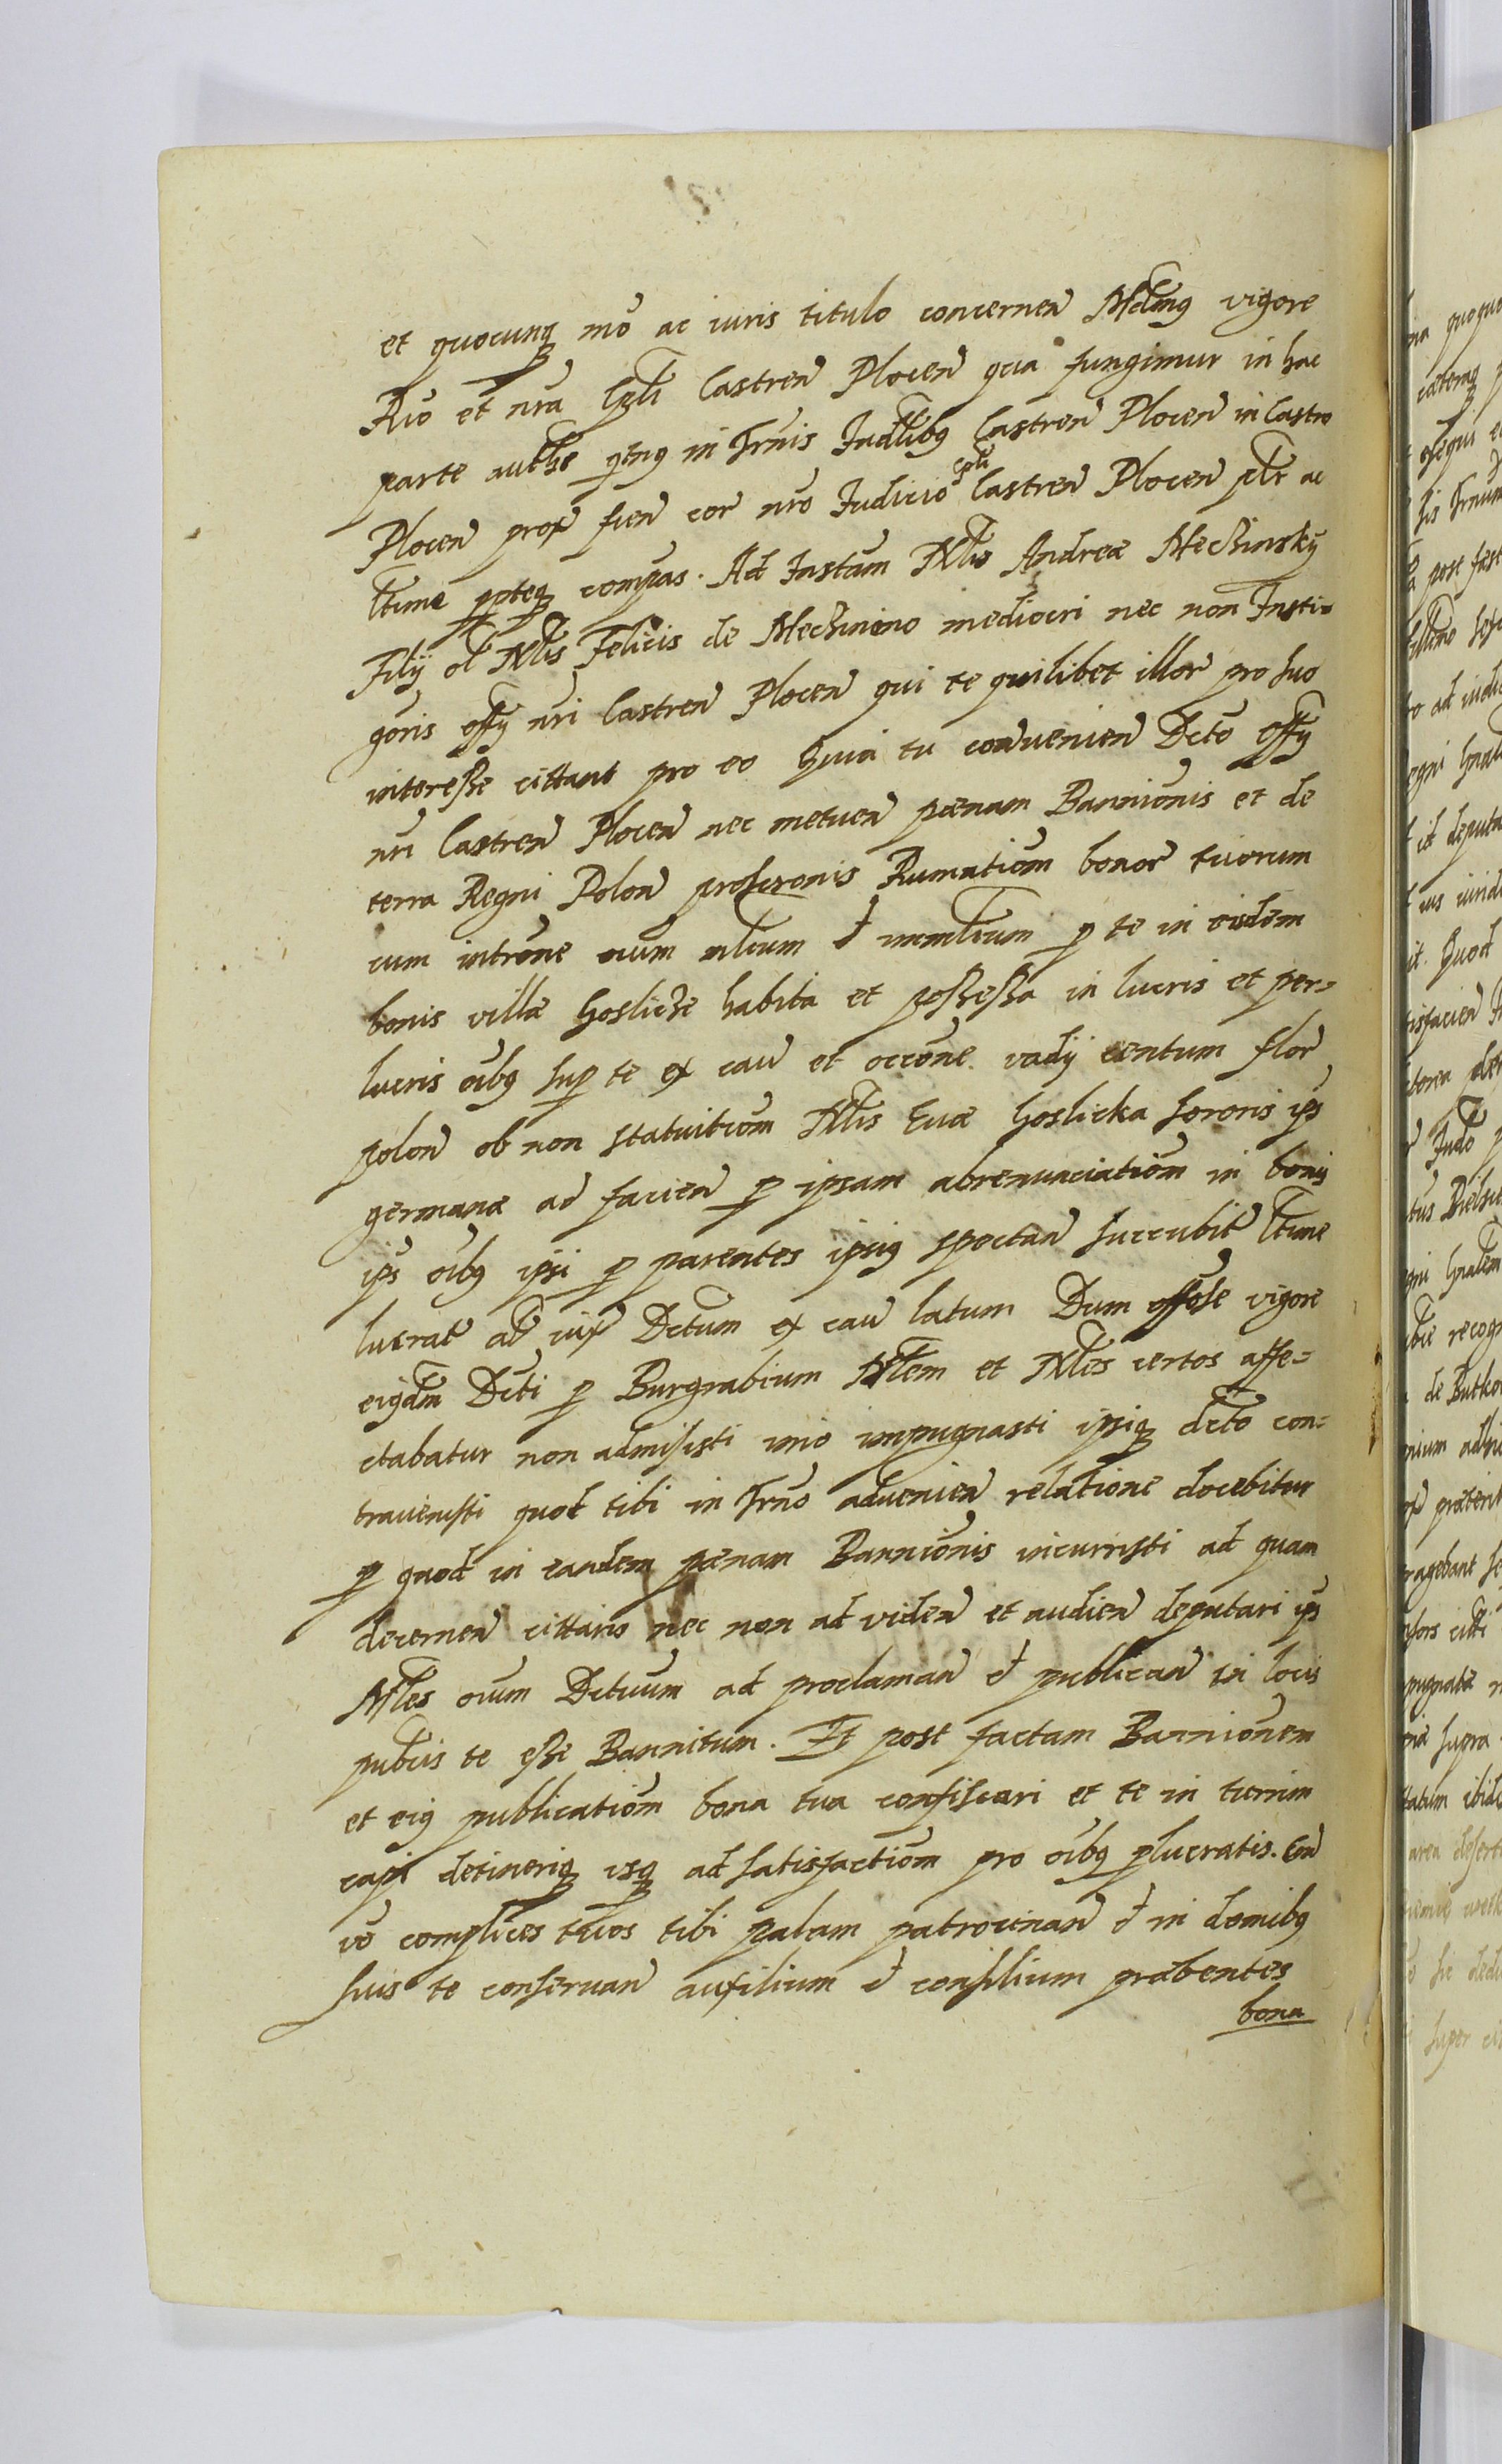 et quocunq mo ac iuris titulo concernen Mdamg vigore
Rio et nra Cpli Castren Plocen qua fungimur in hac
parte authe qtng in Trnis Judlibg Castren Plocen in Castro
Plocen prox fien cor nro Judicio cpli Castren Plocen plr ac
ltime ppteq compas. Ad Instam Nlis Andreæ Mechinskÿ
Filÿ ol Nlis Felicis de Mechinino mediocri nec non Insti=
goris offÿ nri Castren Plocen qui te quilibet illor pro suo
interesse cittant pro eo Quia tu convenien Dcto offÿ
nri Castren Plocen nec metuen pænam Bannionis et de
terra Regni Polon proscronis Rumatiom bonor tuorum
cum introne oium mlium et immlium p te in eisdem
bonis villæ Goslicze habita et possessa in lucris et per=
lucris oibg sup te ex cau et occone vadÿ centum flor
polon ob non statuitiom Nlis Evæ Goslicka sororis ips
germanæ ad facien p ipsam abrenunciatiom in bonis
ips oibg ipsi p parentes ipsig spectan succubit ltime
lucrat ad iux Dctum ex cau latum Dum offose vigore
eigdm Dcti p Burgrabium Nlem et Nles certos affe=
ctabatur non admisisti imo impugnasti ipsiq dcto con=
travenisti quod tibi in Trno advenien relatione docebitur
p quod in eandem pænam Bannionis incurristi ad quam
decernen cittaris nec non ad viden et audien deputari ips
Mles oium Dctuum ad proclaman et publican in locis
publis te esse Bannitum. Et post factam Bannionem
et eig publicatiom bona tua confiscari et te in turrim
capi detineriq usq ad satisfactiom pro oibg plucratis. Eon
vo complices tuos tibi palam patrocinan et in domibg
suis te conservan auxilium et consilium præbentes
bona